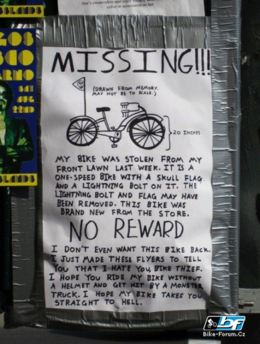 MISSING!!!
(DRAWN FROM MEMORY.
MAY NOT BE TO SCALE.)
20 INCHES
MY BIKE WAS STOLEN FROM MY
FRONT LAWN LAST WEEK. IT IS A
ONE-SPEED BIKE WITH A SKULL FLAG
AND A LIGHTNING BOLT ON IT. THE
LIGHTNING BOLT AND FLAG MAY HAVE
BEEN REMOVED. THIS BIKE WAS
BRAND NEW FROM THE STORE.
NO REWARD
I DON'T EVEN WANT THIS BIKE BACK.
I JUST MADE THESE FLYERS TO TELL
YOU THAT I HATE YOU, BIKE THIEF.
I HOPE YOU RIDE MY BIKE WITHOUT
A HELMET AND GET HIT BY A MONSTER
TRUCK. I HOPE MY BIKE TAKES YOU
STRAIGHT TO HELL.
Bike-Forum.Cz